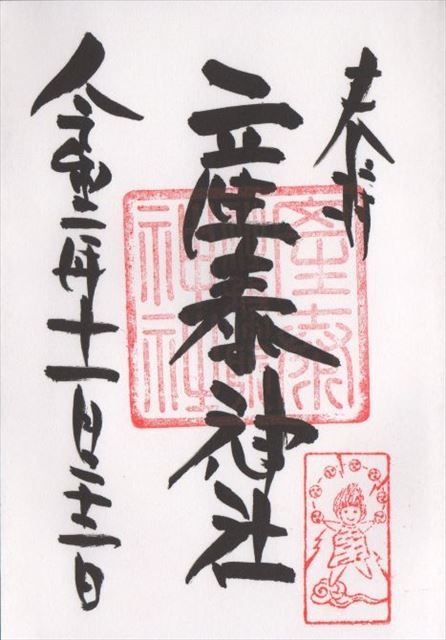 奉拝
産泰神社
令和二年十一月二十一日